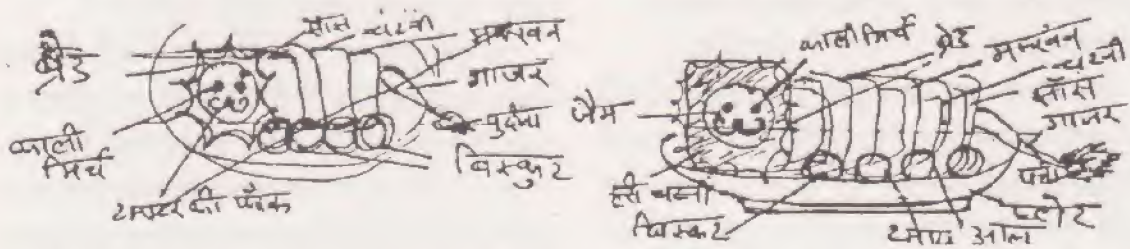 ब्रैड
सॉस
चटनी
मक्खन
गाजर
पुदीना
बिस्कुट
काली मिर्च
टमाटर की फाँक
काली मिर्च
ब्रेड
मक्खन
चटनी
सॉस
गाजर
जैम
हरी चटनी
बिस्कुट
प्लेट